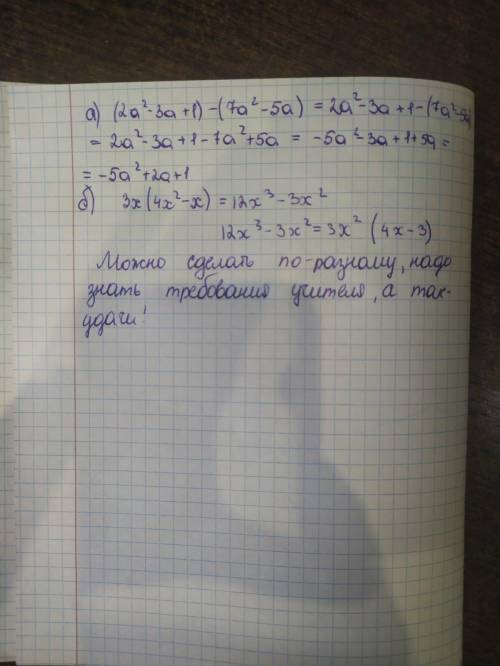 а) (2a²-3a+1)-(7a²-5a) = 2a²-3a+1-(7a²-5a)
= 2a²-3a+1-7a²+5a = -5a²-3a+1+5a =
= -5a²+2a+1
б) 3x(4x²-x) = 12x³-3x²
12x³-3x² = 3x² (4x-3)
Можно сделать по-разному, надо
знать требования учителя, а так-
удачи!